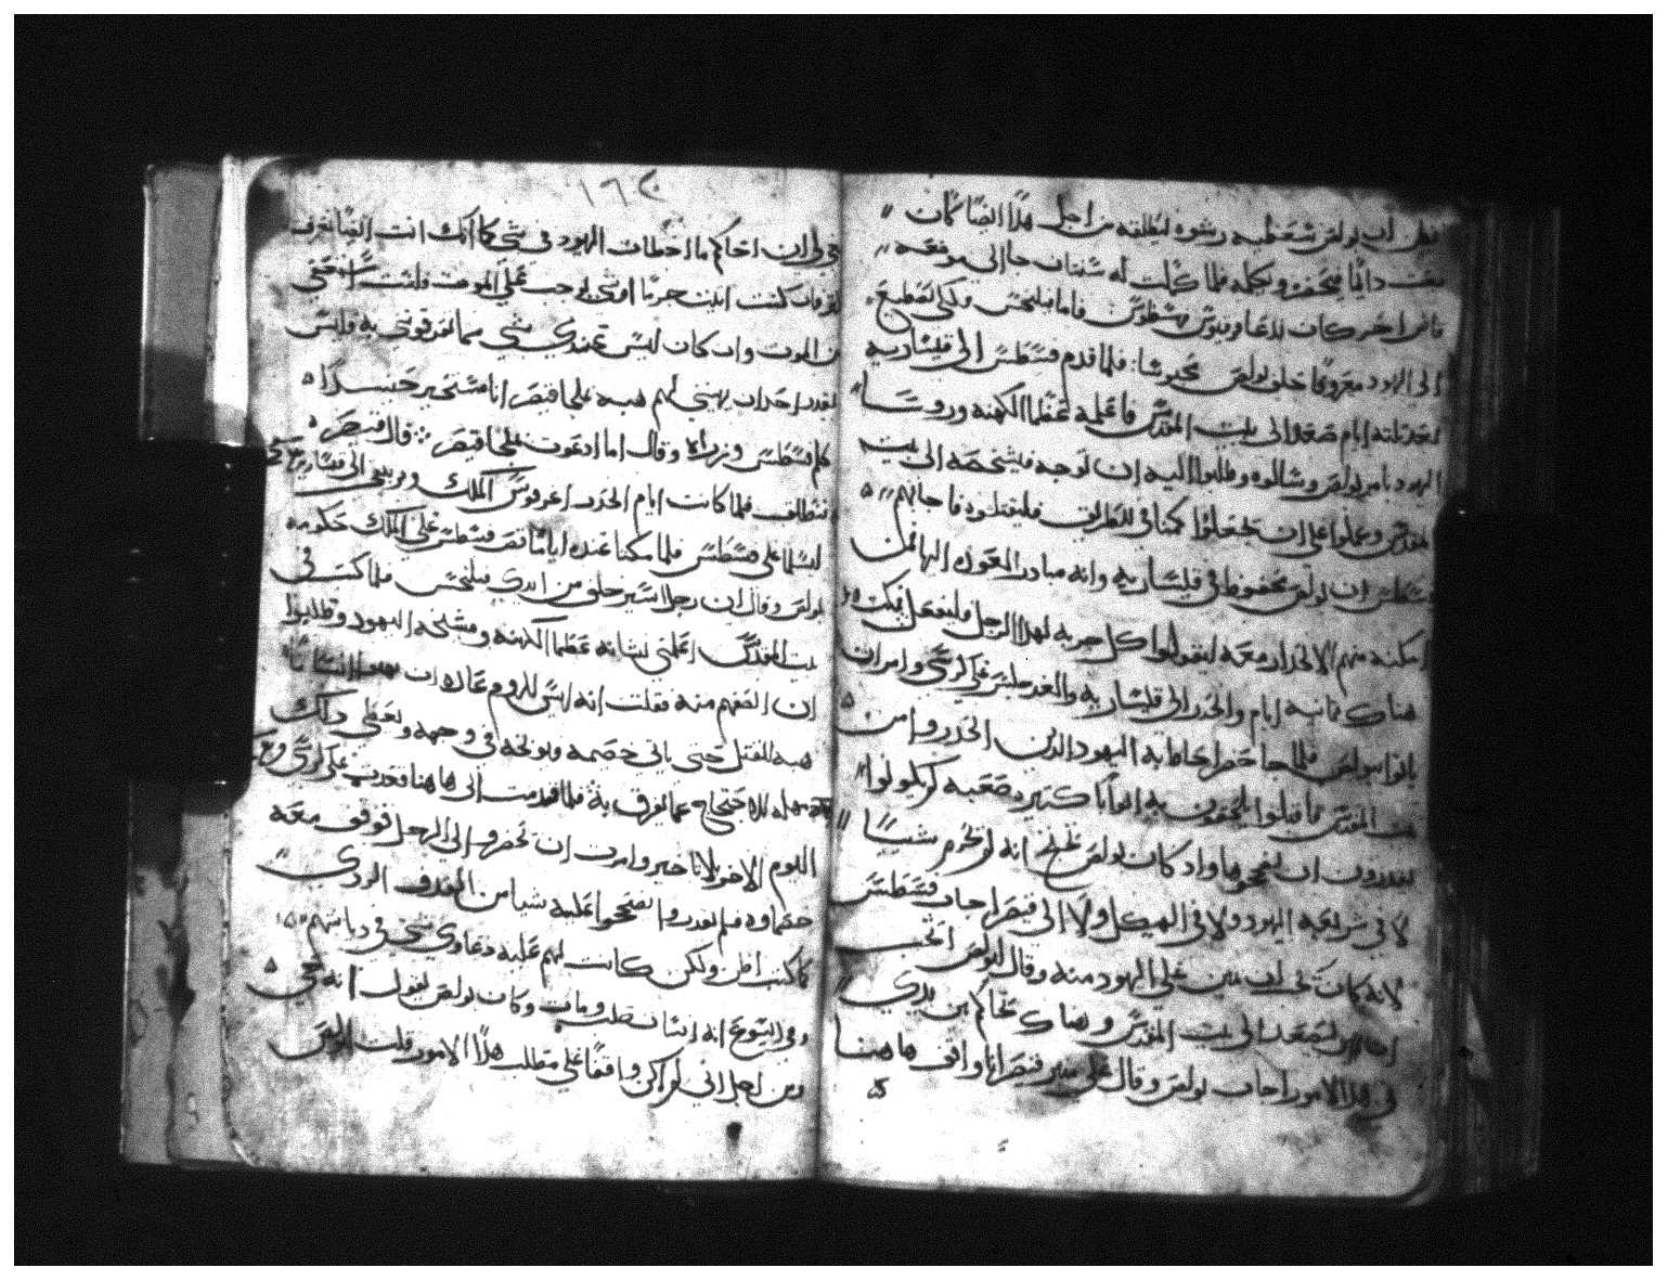 يظن ان بولص سيعطيه رشوه ليطلقه من اجل هذا ايضا كان
يبعث دائما فيحضره ويكلمه فلما كملت له سنتان جا الى موضعه
قاض اخر كان يدعا فسطوس فاما فيلخس لكي يصطنع
الى اليهود معروفا خلف بولص محبوسا فلما قدم فسطس الى قيساريه
بعد ثلثه ايام صعد الى بيت المقدس فاعلمه عظما الكهنه وروسا
اليهود بامر بولص وسالوه وطلبوا اليه ان يوجه فيشخصه الى بيت
المقدس وعملوا على ان يجعلوا كمنا في الطريق فليقتلوه فاجابهم
فسطس ان بولص محفوظ في قيساريه وانه مبادر العوده اليها فمن
امكنه منهم الانحدار معه ليقولوا كل جريه لهذا الرجل فليفعل فمكث
هناك ثمانيه ايام وانحدر الى قيساريه والغد جلس على كرسي وامر ان
ياتوا ببولص فلما جا حضر احاط به اليهود الذين انحدروا من
بيت المقدس فاقبلوا يلحقون به ابوابا كثيره صعبه لم يكونوا
يقدرون ان يصححوها واذ كان بولص يحتج انه لم يجرم شيا
لا في شريعه اليهود ولا في الهيكل ولا الى قيصر اجاب فسطس
لانه كان يحب ان يمن على اليهود منه وقال لبولص اتحب
ان تصعد الى بيت المقدس وهناك تحاكم بين يدي
في هذا الامور اجاب بولص وقال على منبر قيصر انا واقف هاهنا
١٦٢
يحق لي ان احاكم ما اخطات اليهود في شي كما انك انت ايضا تعرف
فان كنت اتيت جرما او شي يوجب على الموت فلست استعفي
من الموت وان كان ليس عندي شي مما يقرفوني به فليس
يقدر احد ان يهبني لهم هبه على جا قيصر انا مستجير حينيذ
كلم فسطس وزراه وقال اما ادعوت على جا قيصر قال قيصر
تنطلق فلما كانت ايام انحدر اغرفوس الملك وبرنيقي الى قيساريه
ليسلما على فسطس فلما مكثا عنده اياما قص فسطس على الملك حكومه
بولص وقال ان رجلا اسير خلف من ايدي فيلخس فلما كنت في
بيت المقدس اعلمني بشانه عظما الكهنه ومشيخه اليهود وطلبوا
ان انصفهم منه فقلت انه ليس للروم عاده ان يهبوا انسانا
هبه للقتل حتى ياتي خصمه ويوبخه في وجهه ويعطى ذلك
مهله للاحتجاج عما يقرف به فلما قدمت الى هاهنا قعدت على كرسي
اليوم الاخر بلا تاخير وامرت ان تحضروا الي الرجل فوقف معه
خصماوه فلم يقدروا يصححوا عليه شيا من القذف الردي
كما كنت اظن ولكن كانت لهم عليه دعاوي شي في ديانتهم
وفي ايسوع انه انسان صلب ومات وكان بولص يقول انه حي
ومن اجل اني لم اكن واقفا على مطلب هذا الامور قلت لبولص